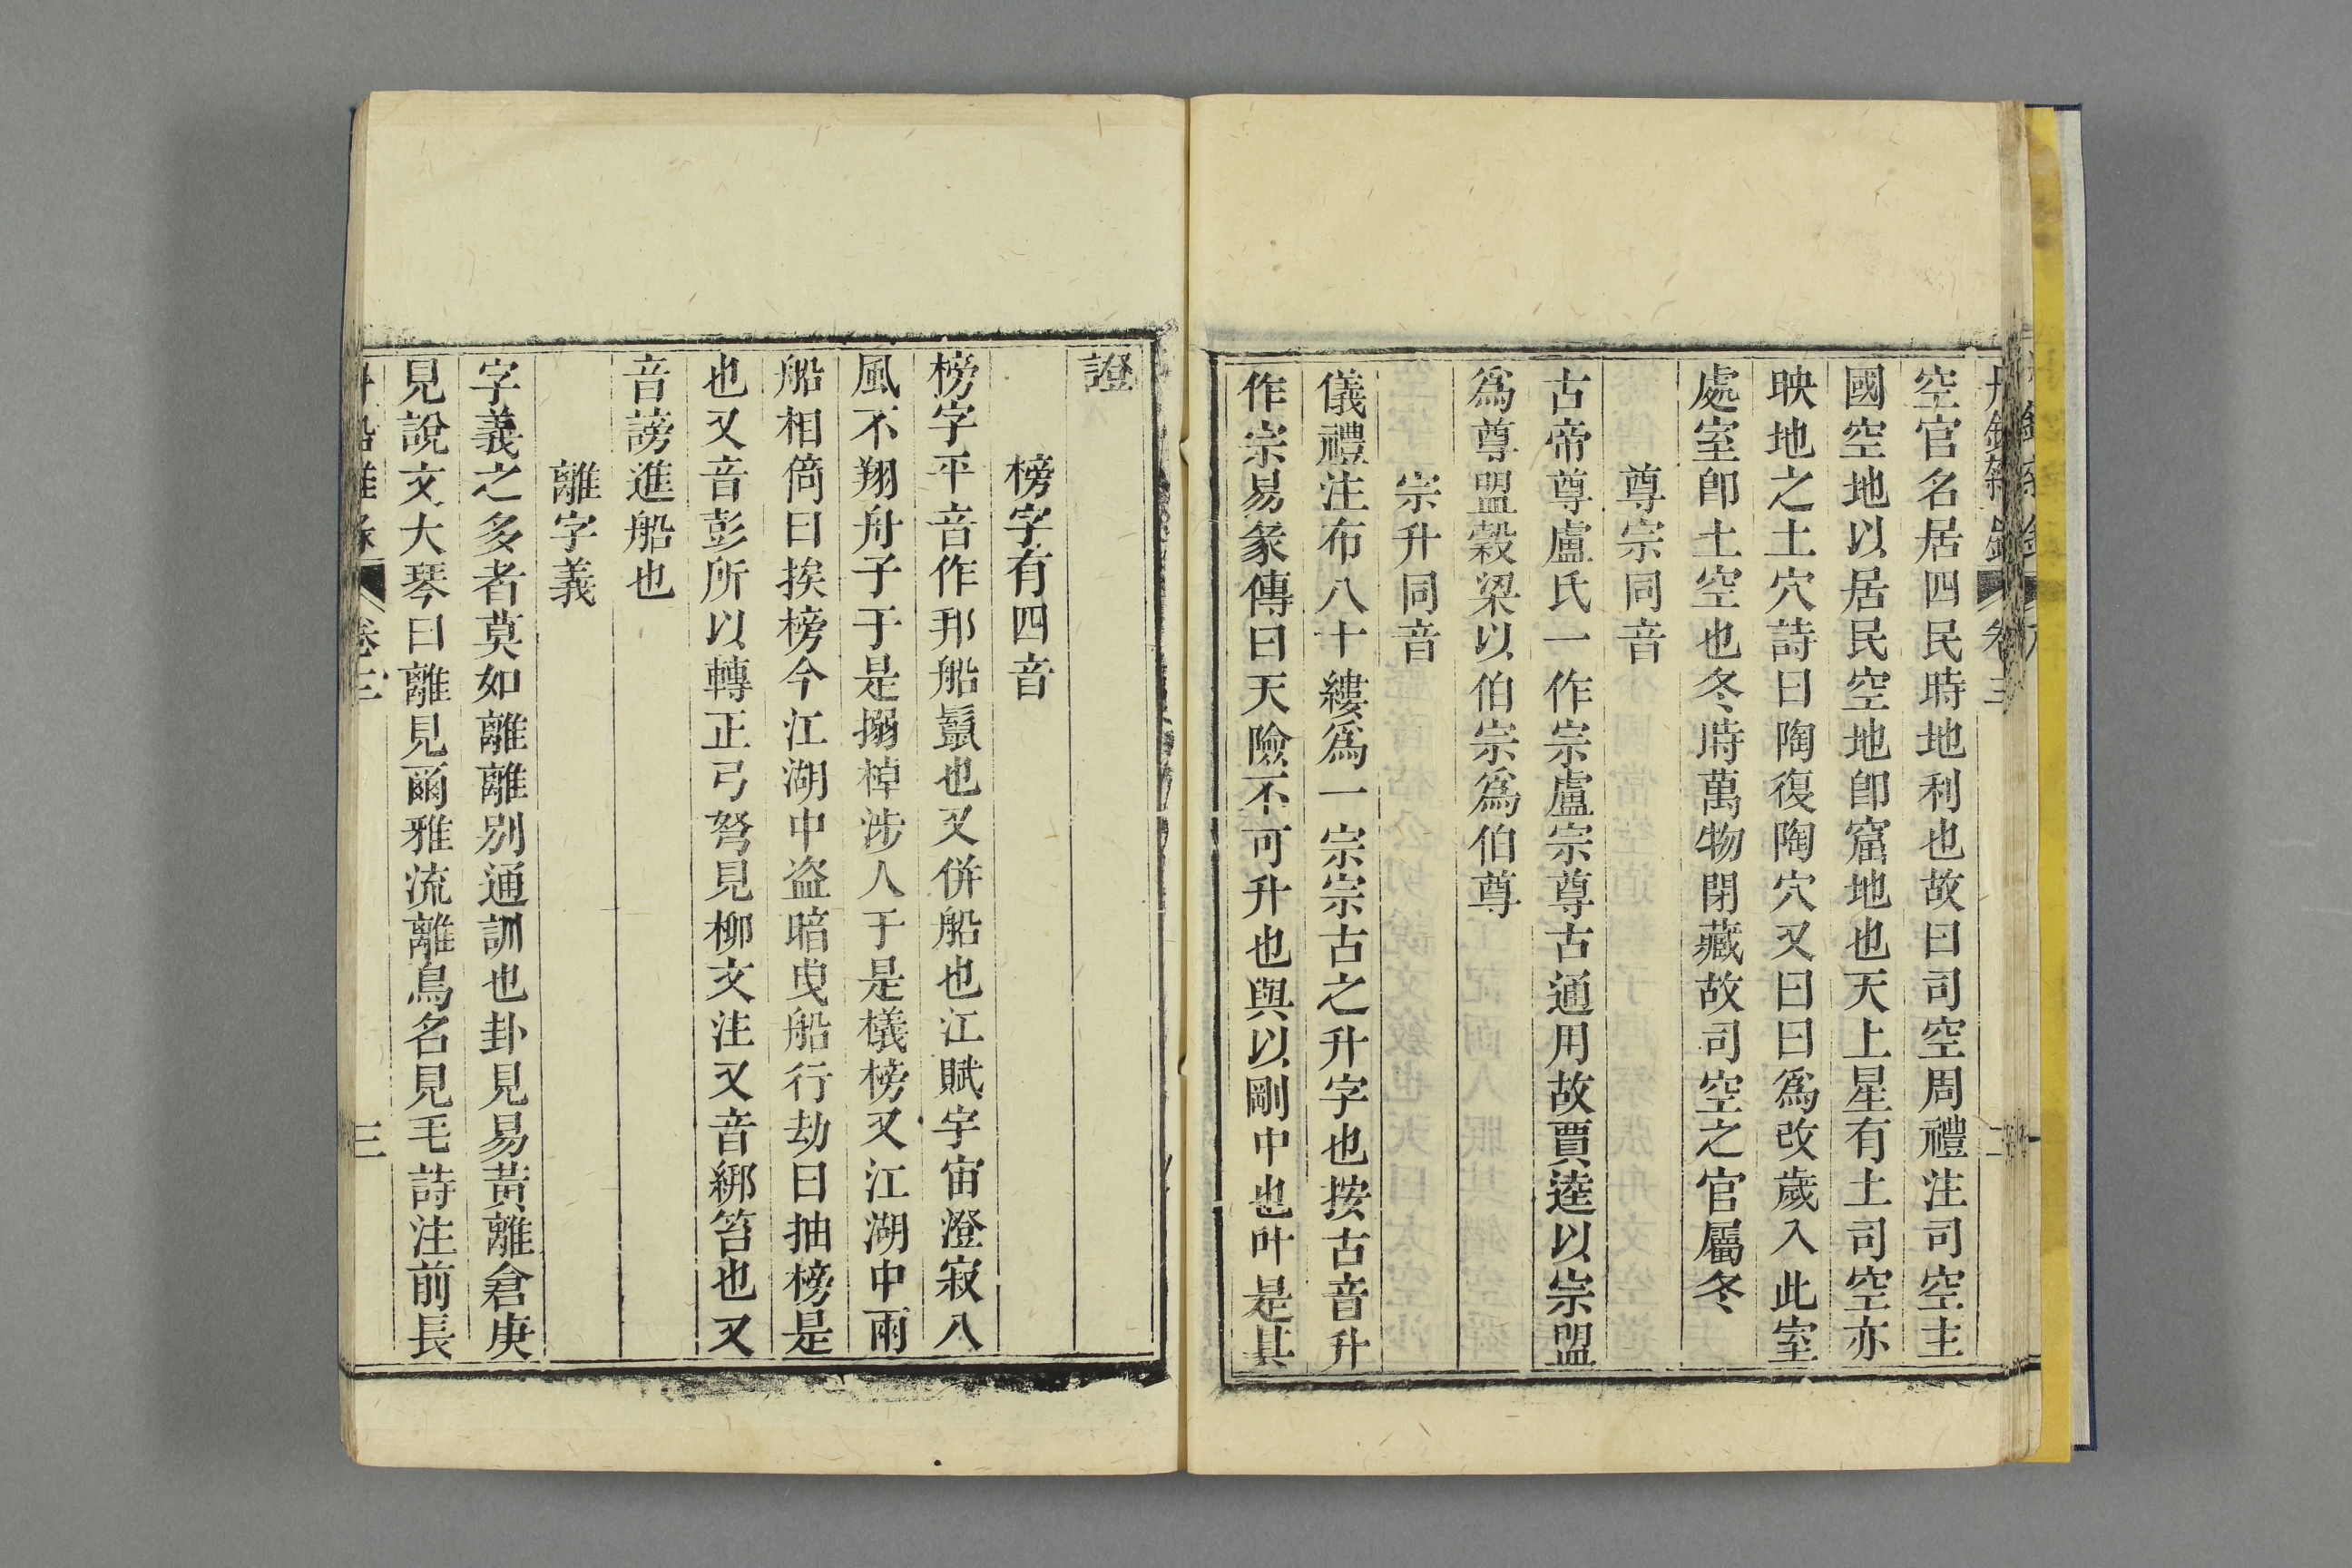 空官名居四民時地利也故曰司空周禮注司空主
國空地以居民空地卽窟地也天上星有土司空亦
映地之土穴詩曰陶復陶穴又曰曰爲改歲入此室
處室卽土空也冬時萬物閉藏故司空之官屬冬
尊宗同音
古帝尊盧氏一作宗盧宗尊古通用故賈逵以宗盟
爲尊盟穀梁以伯宗爲伯尊
宗升同音
儀禮注布八十縷爲一宗宗古之升字也按古音升
作宗易彖傳曰天險不可升也與以剛中也叶是其
證
榜字有四音
榜字平音作邦船䰇也又併船也江賦宇宙澄寂八
風不翔舟子于是搦棹涉人于是檥榜又江湖中兩
船相倚曰挨榜今江湖中盗暗曵船行劫曰抽榜是
也又音彭所以轉正弓弩見柳文注又音綁笞也又
音謗進船也
離字義
字義之多者莫如離離別通訓也卦見易黃離倉庚
見說文大琴曰離見爾雅流離鳥名見毛詩注前長
卷三
三